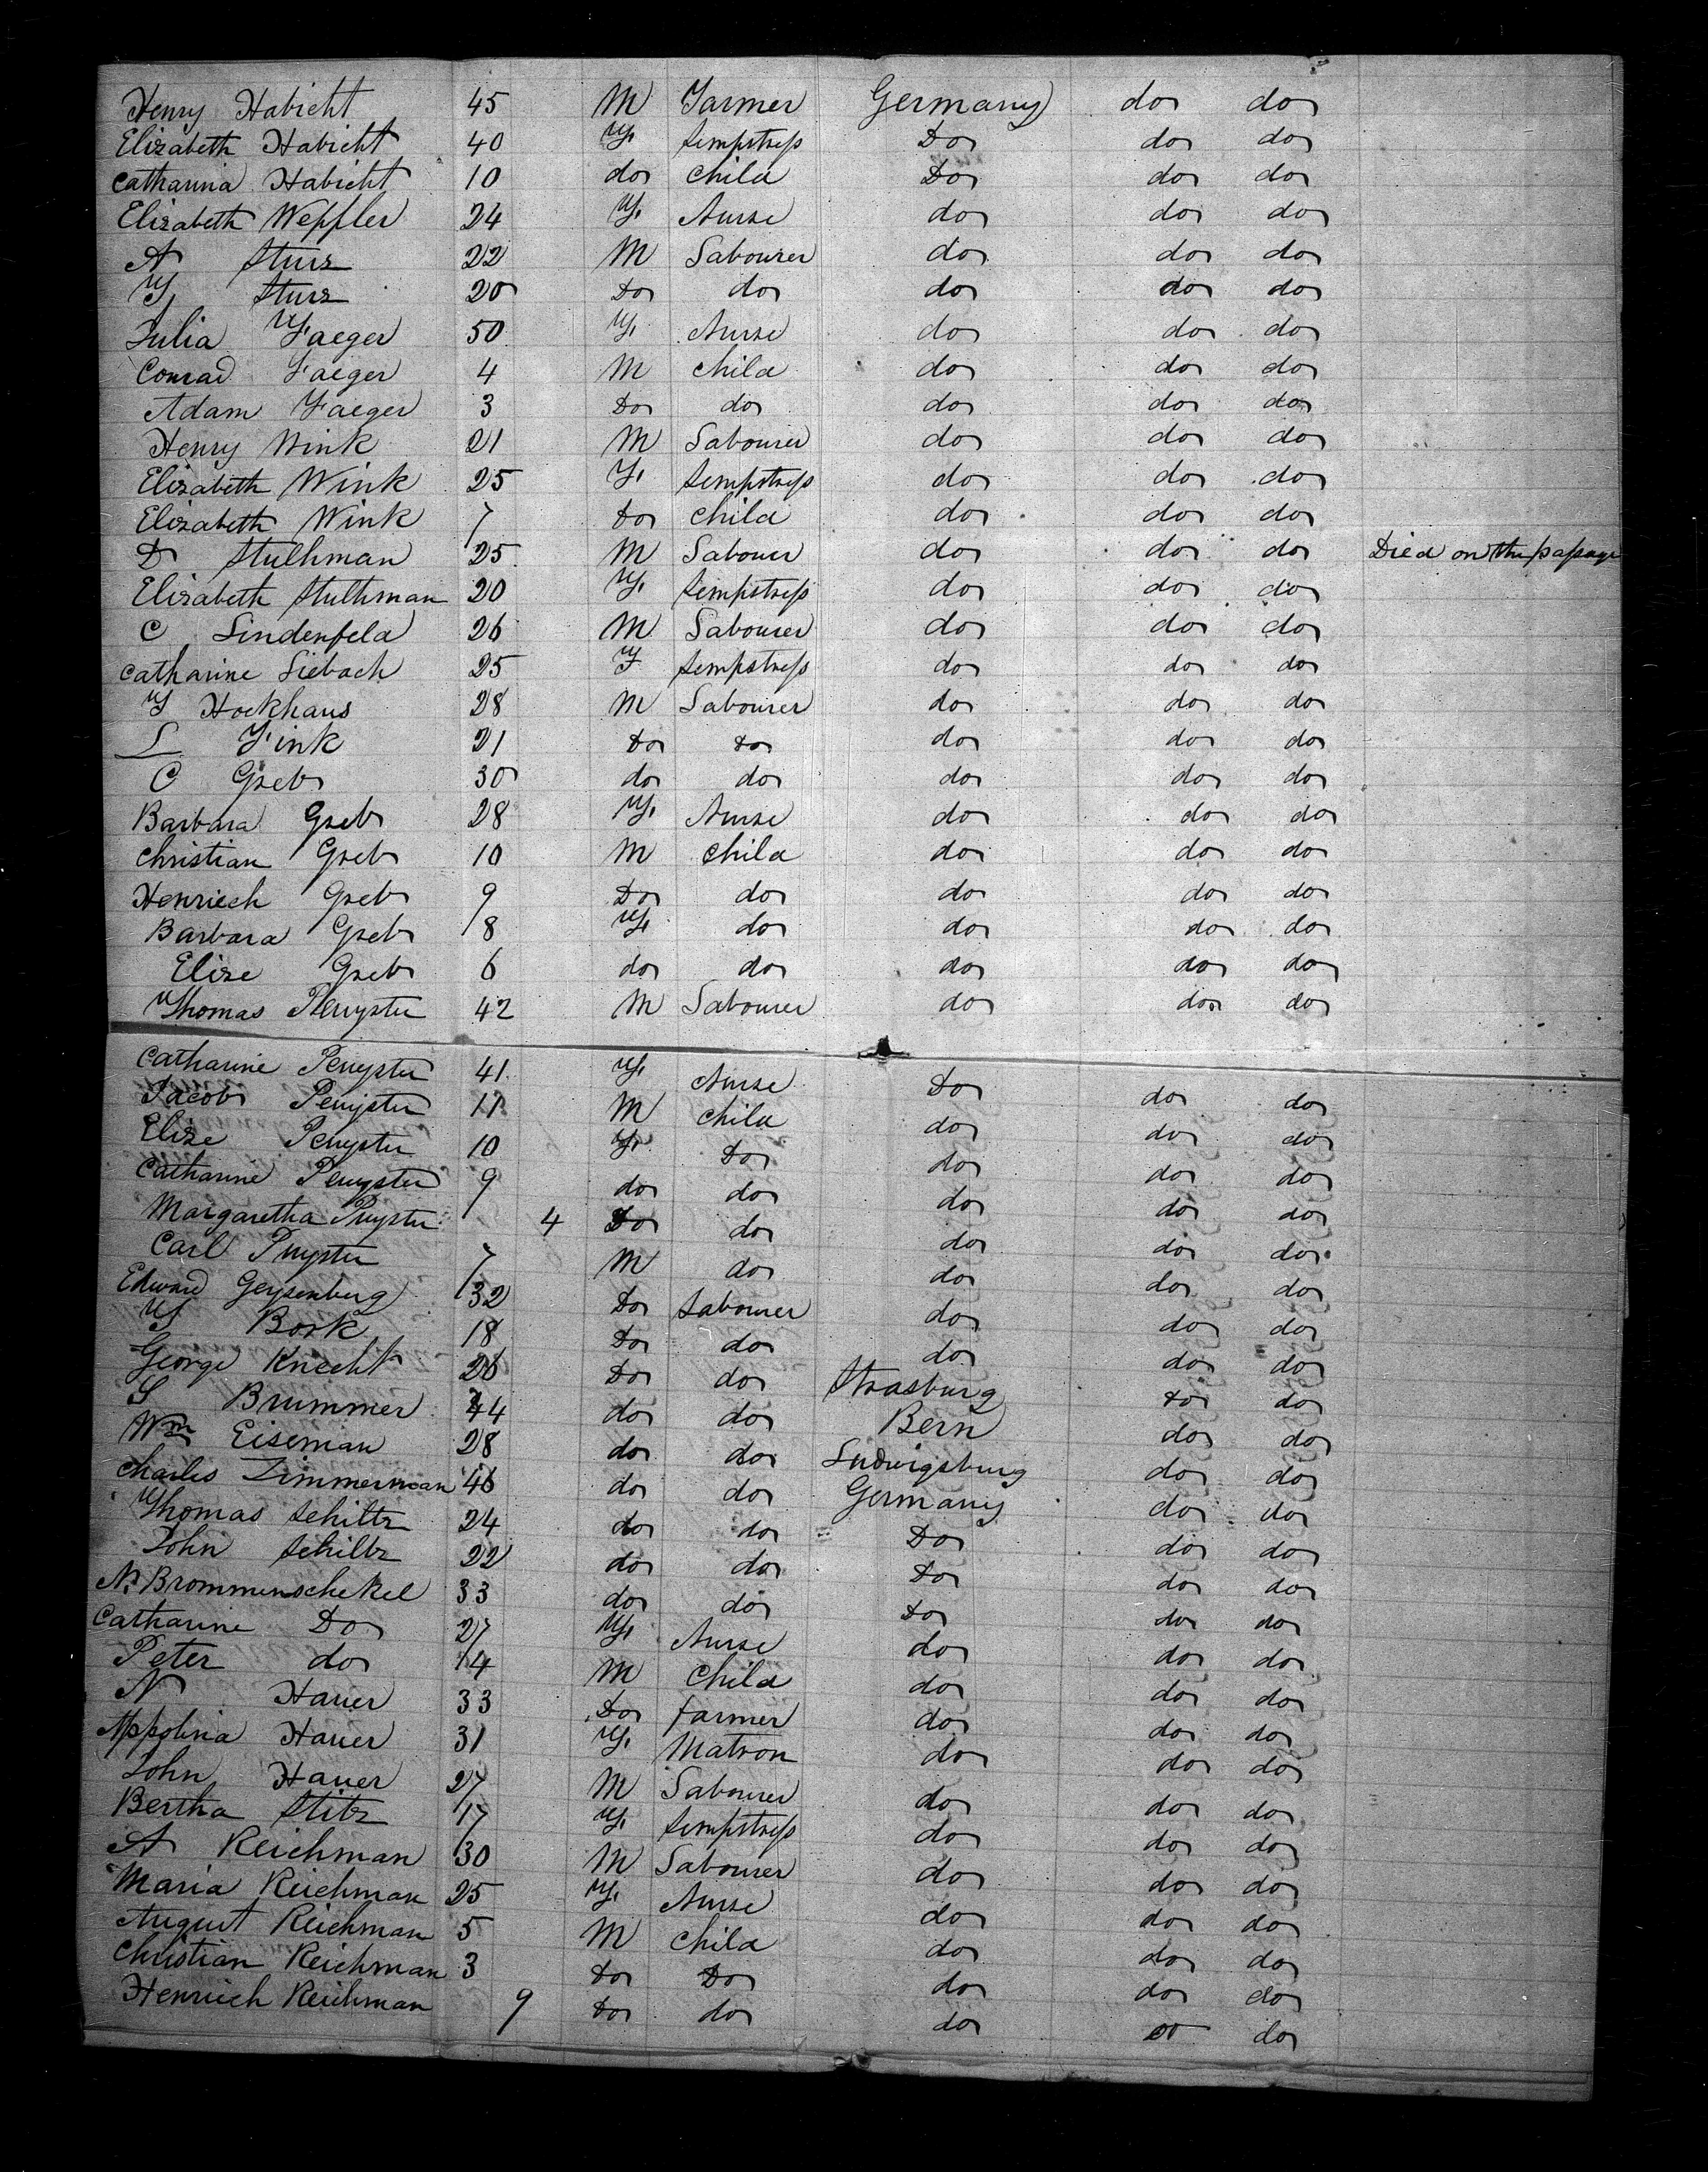 Henry Habicht 45 M Farmer Germany do do
Elizabeth Habicht 40 F. sempstress Do do do
Catharina Habicht 10 do child Do do do
Elizabeth Weppler 24 F. Nurse do do do
A Sturz 22 M Labourer do do do
F Sturz 20 Do do do do do
Julia Faeger 50 F. Nurse do do do
Conrad Faeger 4 M child do do do
Adam Faeger 3 Do do do do do
Henry Wink 21 M Labourer do do do
Elizabeth Wink 25 F. sempstress do do do
Elizabeth Wink 7 Do child do do do
D Stulhman 25 M Labouer do do do Died on the passage
Elizabeth Stulhman 20 F. sempstress do do do
C Lindenfeld 26 M Labourer do do do
Catharine Liebach 25 F sempstress do do do
F Hockhaus 28 M Labourer do do do
L Fink 21 Do Do do do do
C Greb 30 do do do do do
Barbara Greb 28 F. Nurse do do do
Christian Greb 10 M child do do do
Henriech Greb 9 Do do do do do
Barbara Greb 8 F. do do do do
Elize Greb 6 do do do do do
Thomas Penyster 42 M Labourer do do do
Catharine Penyster 41 F. Nurse Do do do
Jacob Penyster 11 M child do do do
Elize Penyster 10 F. Do do do do
Catharine Penyster 9 do do do do do
Margaretha Pnyster 4 Do do do do do
Carl Pnyster 7 M do do do do
Edward Geysenburg 32 Do Labourer do do do
F Bork 18 Do do do do do
George Knecht 26 Do do Strasburg Do do
S Brummer 44 do do Bern do do
Wm Eiseman 28 do do Ludwigsburg do do
Charles Zimmerman 46 do do Germany do do
Thomas Schiltz 24 do do Do do do
John Schiltz 22 do do Do do do
N. Brommenschekel 33 do do Do do do
Catharine Do 27 F. Nurse do do do
Peter do 14 M Child do do do
N Hauer 33 Do farmer do do do
Appolina Hauer 31 F. Matron do do do
John Hauer 27 M Labourer do do do
Bertha Stitz 17 F. sempstress do do do
A Reichman 30 M Labourer do do do
Maria Reichman 25 F. Nurse do do do
August Reichman 5 M child do do do
Christian Reichman 3 Do Do do do do
Henriech Reichman 9 Do do do do do